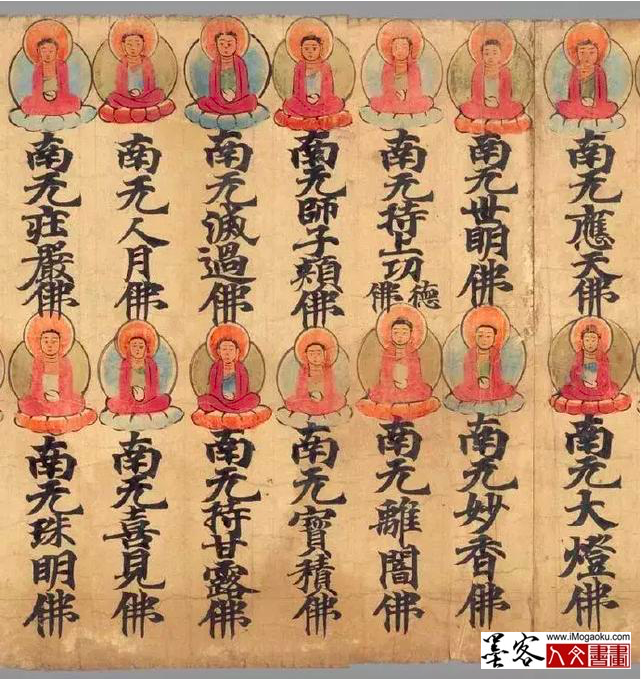 南无應天佛
南无世明佛
南无持上功德佛
南无師子頰佛
南无滅過佛
南无人月佛
南无莊嚴佛
南无大燈佛
南无妙香佛
南无離闇佛
南无寶積佛
南无持甘露佛
南无喜見佛
南无珠明佛
墨客
www.iMogaoku.com
人文書畫